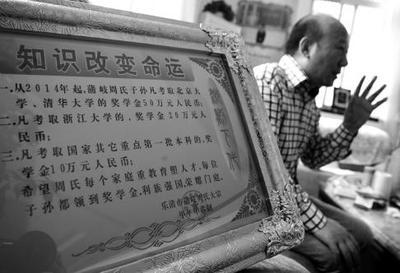 知识改变命运
一.从2014年起,蒲岐周氏子孙凡考取北京大
学、清华大学的奖学金50万元人民币;
二.凡考取浙江大学的,奖学金 20万元人
民币;
三.凡考取国家其它重点第一批本科的,奖
学金10万元人民币;
希望周氏每个家庭重教育照人才,每位
子孙都领到奖学金,利族强国,荣耀门庭.
乐清市蒲岐周氏大宗